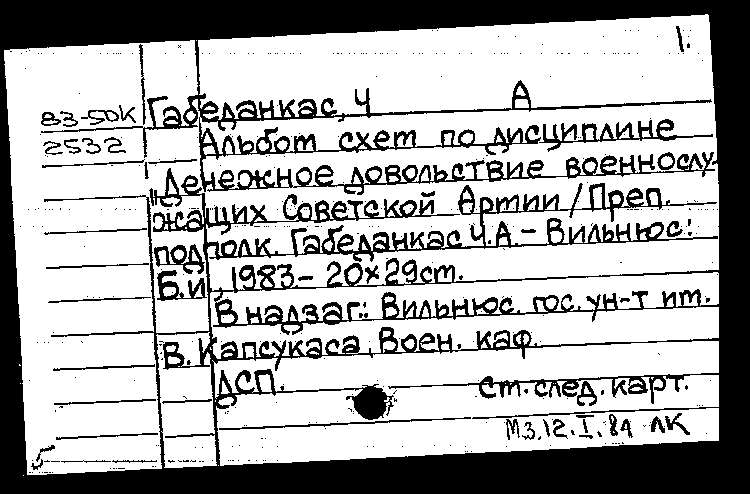 1.
83-50К Габеданкас, Ч А
2532 Альбот схет по дисциплине
"Денежное довольствие военнослу-
жащих Советской Артии / Преп.
подполк. Габеданкас Ч.А. - Вильнюс:
Б.и., 1983 - 20×29ст.
В надзаг.: Вильнюс. гос. ун-т ит.
В. Капсукаса, Воен. каф.
ДСП.
ст. след. карт.
М3.12.I.84 ЛК
5